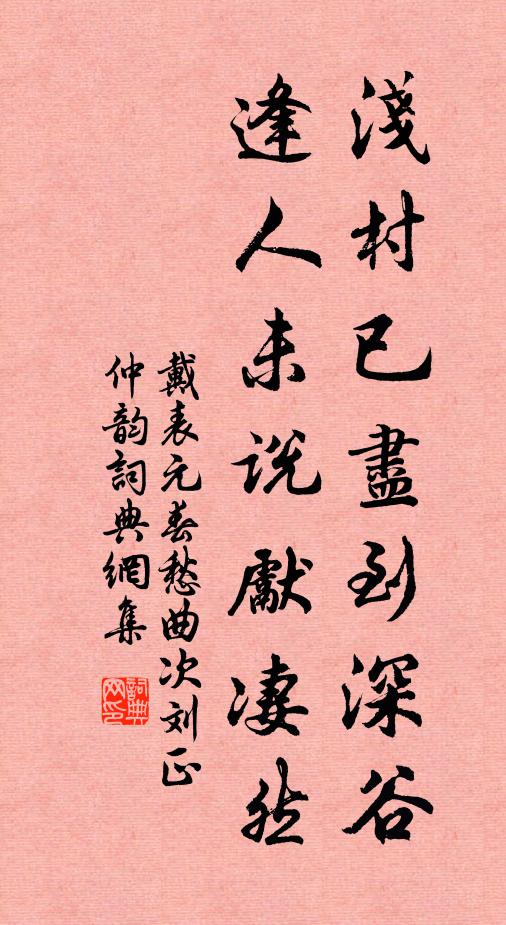 淺村已盡到深谷
逢人未説獻淒然
戴表元春愁曲次刘正
仲韵詞典網集
詞典网印